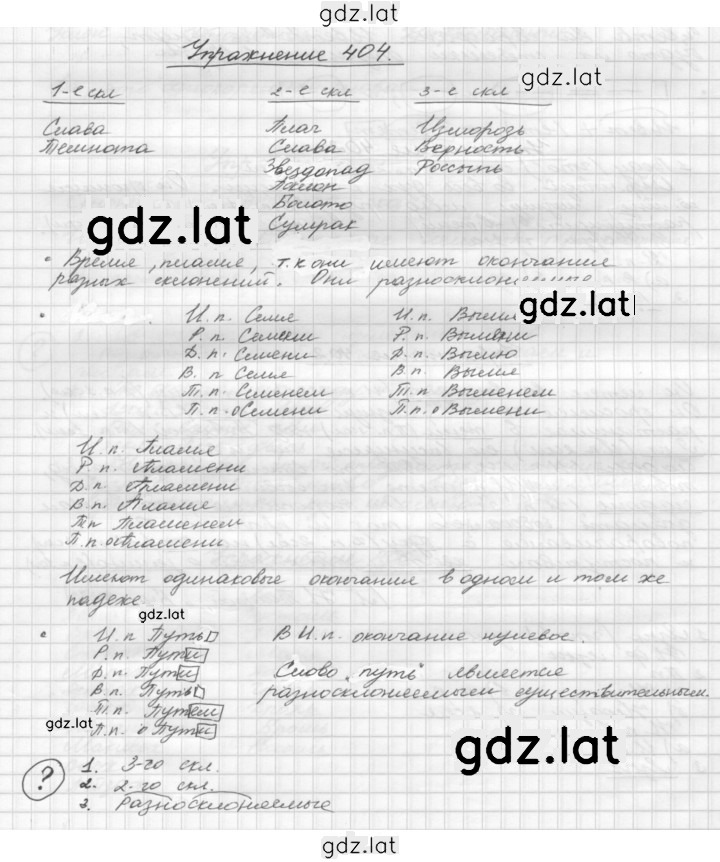 gdz.lat
Упражнение 404.
gdz.lat
1-е скл 2-е скл 3-е скл
Слава Плач Изморозь
Темнота Слава Верность
Звездопад Россыпь
Болото
Сумрак
gdz.lat
• Время, пламя, т.к они имеют окончание
разных склонений. Они
gdz.lat
И.п. Семя И.п. Вымя
Р.п. Семени Р.п. Вымени
Д.п. Семени Д.п. Вымю
В.п Семя В.п. Вымя
Т.п. Семенем Т.п. Выменем
П.п. о Семени П.п. о Вымени
И.п. Пламя
Р.п. Пламени
Д.п. Пламени
В.п. Пламя
Т.п Пламенем
П.п. о Пламени
Имеют одинаковые окончания в одном и том же
падеже.
gdz.lat
• И.п Путь В И.п. окончание нулевое.
Р.п. Пути
Д.п. Пути Слово "путь" является
В.п. Путь разносклоняемым существительным.
Т.п. Путем
П.п. о Пути
gdz.lat
gdz.lat
? 1. 3-го скл.
2. 2-го скл.
3. Разносклоняемые
gdz.lat